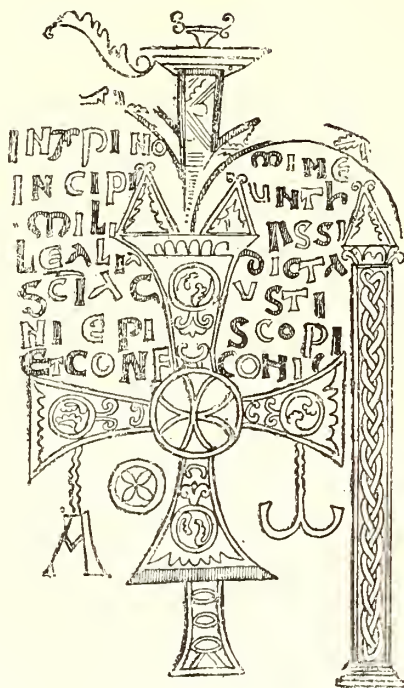 IN XPI NO MINE
INCIPI UNT h
OMILI ASSI
UEALIA DICTA
SCI AC USTI
NI EPI SCOPI
ET CONF
A ω